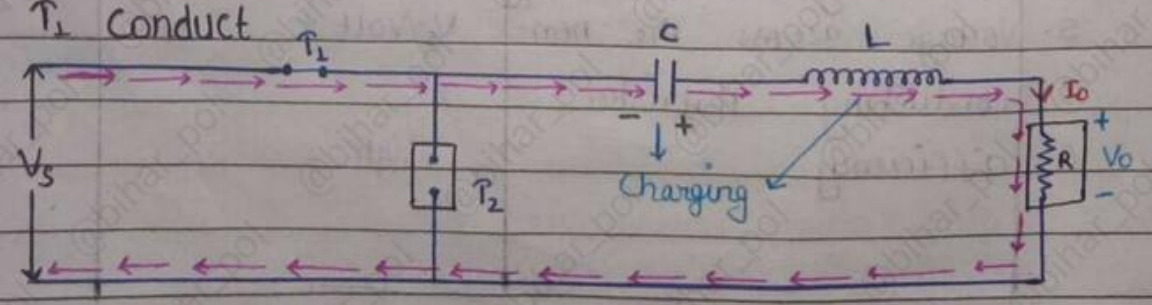 T₁ Conduct
T₁
C
L
I₀
Vs
T₂
- +
Charging
R
+
V₀
-
@bihar_pol